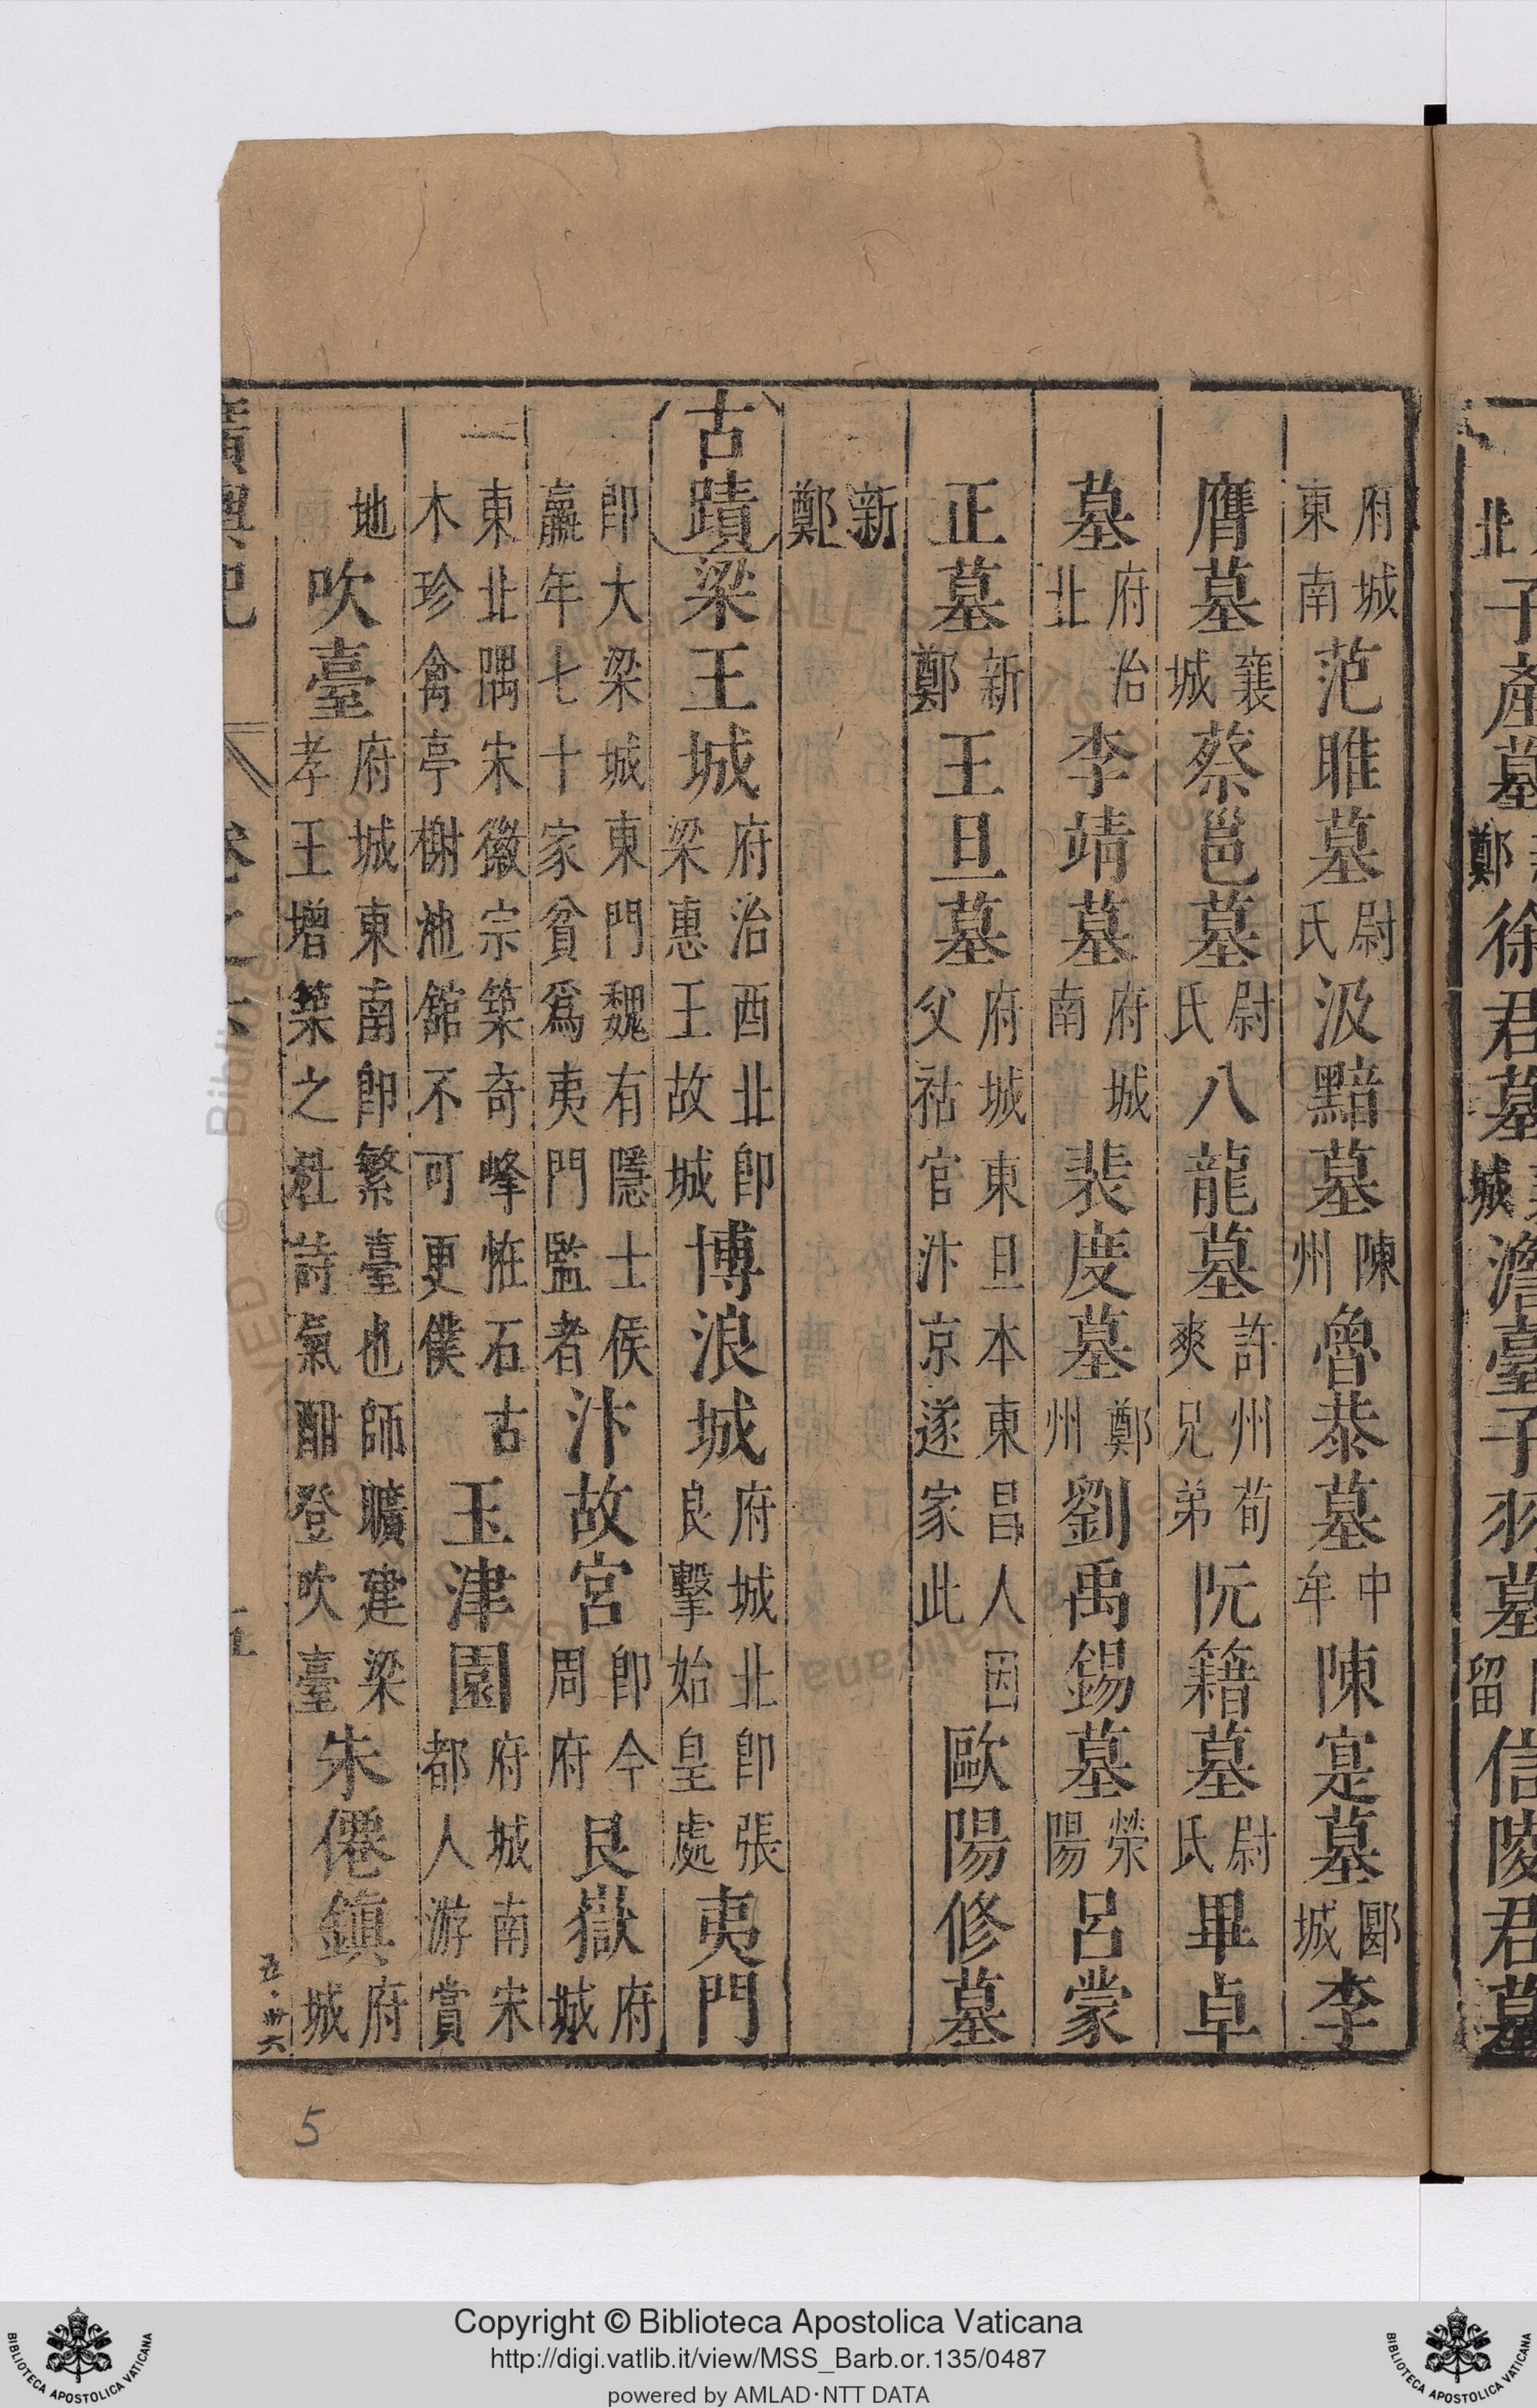 府城東南范雎墓尉氏汲黯墓陳州魯恭墓中牟陳寔墓郾城李
膺墓襄城蔡邕墓尉氏八龍墓許州荀爽兄弟阮籍墓尉氏畢卓
墓府治北李靖墓府城南裴度墓鄭州劉禹錫墓滎陽呂蒙
正墓新鄭王旦墓府城東旦本東昌人因父祜官汴京遂家此歐陽修墓
新鄭
古蹟梁王城府治西北卽梁惠王故城博浪城府城北卽張良擊始皇處夷門
卽大梁城東門魏有隱士侯嬴年七十家貧爲夷門監者汴故宮卽今周府艮嶽府城
東北隅宋徽宗築奇峰恠石古木珍禽亭榭池館不可更僕玉津園府城南宋都人游賞
地吹臺府城東南卽繁臺也師曠建梁孝王增築之杜詩氣酣登吹臺朱僊鎮府城
五·卅六
5
Copyright © Biblioteca Apostolica Vaticana
http://digi.vatlib.it/view/MSS_Barb.or.135/0487
powered by AMLAD·NTT DATA
BIBLIOTECA APOSTOLICA VATICANA
BIBLIOTECA APOSTOLICA VATICANA